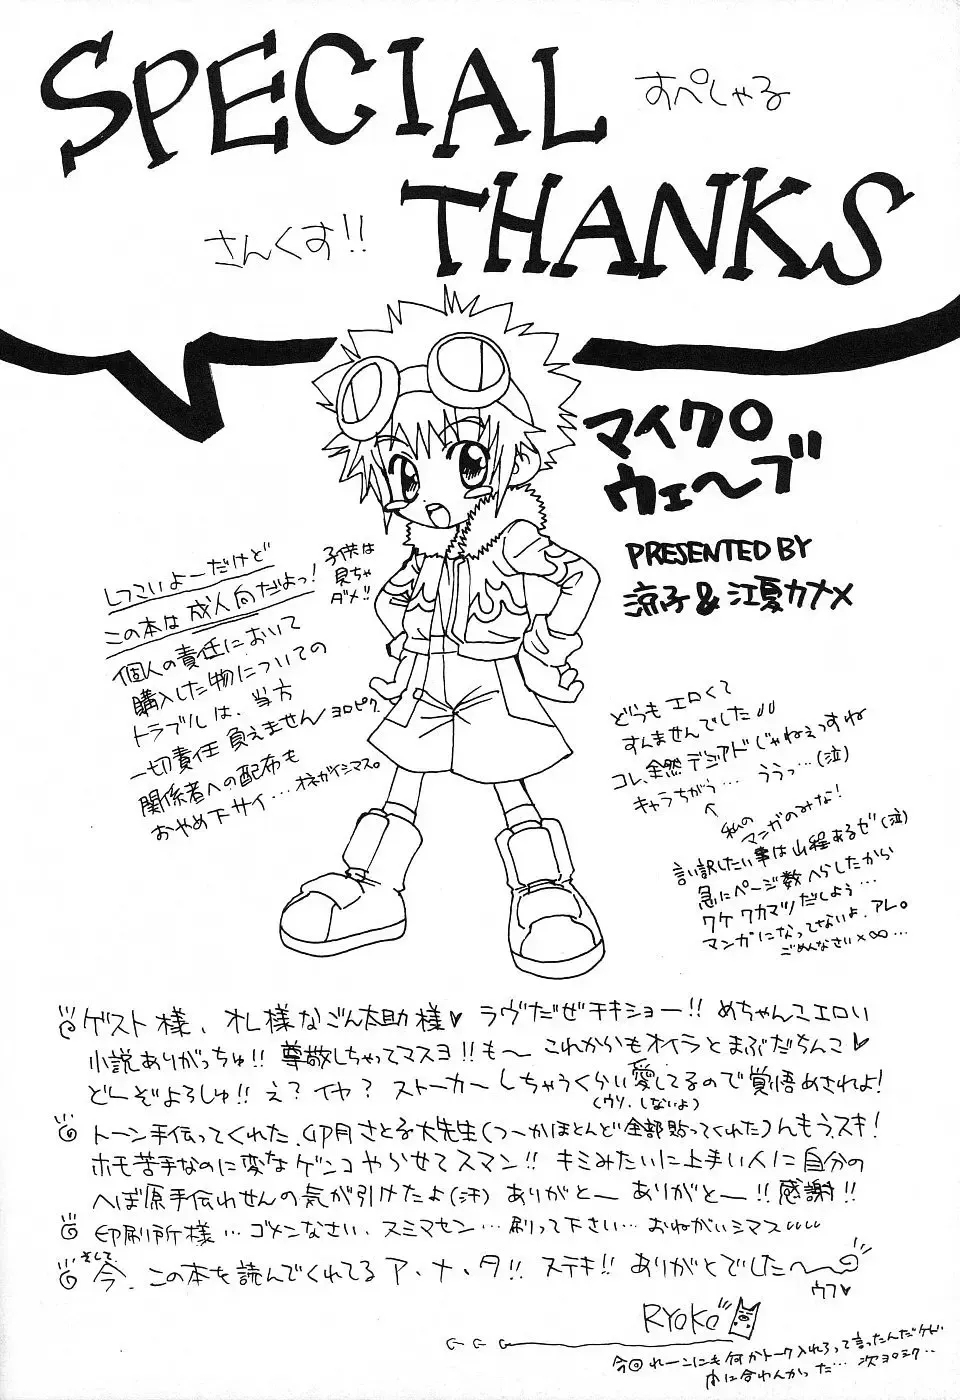 SPECIAL
すぺしゃる
THANKS
さんくす!!
マイクロ
ウェ〜ブ
PRESENTED BY
涼子&江夏カナメ
子供は
見ちゃ
ダメ!!
しつこいよーだけど
この本は成人向だよっ!
個人の責任において
購入した物についての
トラブルは、当方
一切責任 負えません ヨロピク
関係者への配布も
おやめ下サイ…オネガイシマス。
どうもエロくて
すんませんでした
コレ、全然デジアドじゃねぇっすね
キャラちがう… ううっ…(泣)
私の
マンガのみな!
言い訳したい事は山程あるぜ(泣)
急にページ数へらしたから
ワケワカマツだしよう…
マンガになってないよ、アレ。
ごめんなさい×∞…
ゲスト様、オレ様なごん太助様♥ ラヴだぜチキショー!! めちゃんこエロい
小説ありがっちゅ!! 尊敬しちゃってマスヨ!! も〜 これからもオイラとまぶだちんこ♥
どーぞよろしゅ!! え? イヤ? ストーカーしちゃうくらい愛してるので覚悟めされよ!
(ウソ、しないよ)
トーン手伝ってくれた、卯月さと子大先生(つーかほとんど全部貼ってくれた)んもう、スキ!
ホモ苦手なのに変なゲンコやらせてスマン!! キミみたいに上手い人に自分の
へぼ原手伝わせんの気が引けたよ(汗) ありがとー ありがとー!! 感謝!!
印刷所様…ゴメンなさい、スミマセン…刷って下さい…おねがいシマス
そして
今、この本を読んでくれてるア・ナ・タ!! ステキ!! ありがとでした〜〜
ウフ♥
RYOKO
今回れーンにも何かトーク入れろって言ったんだケド
まに合わんかった…次ヨロシク…